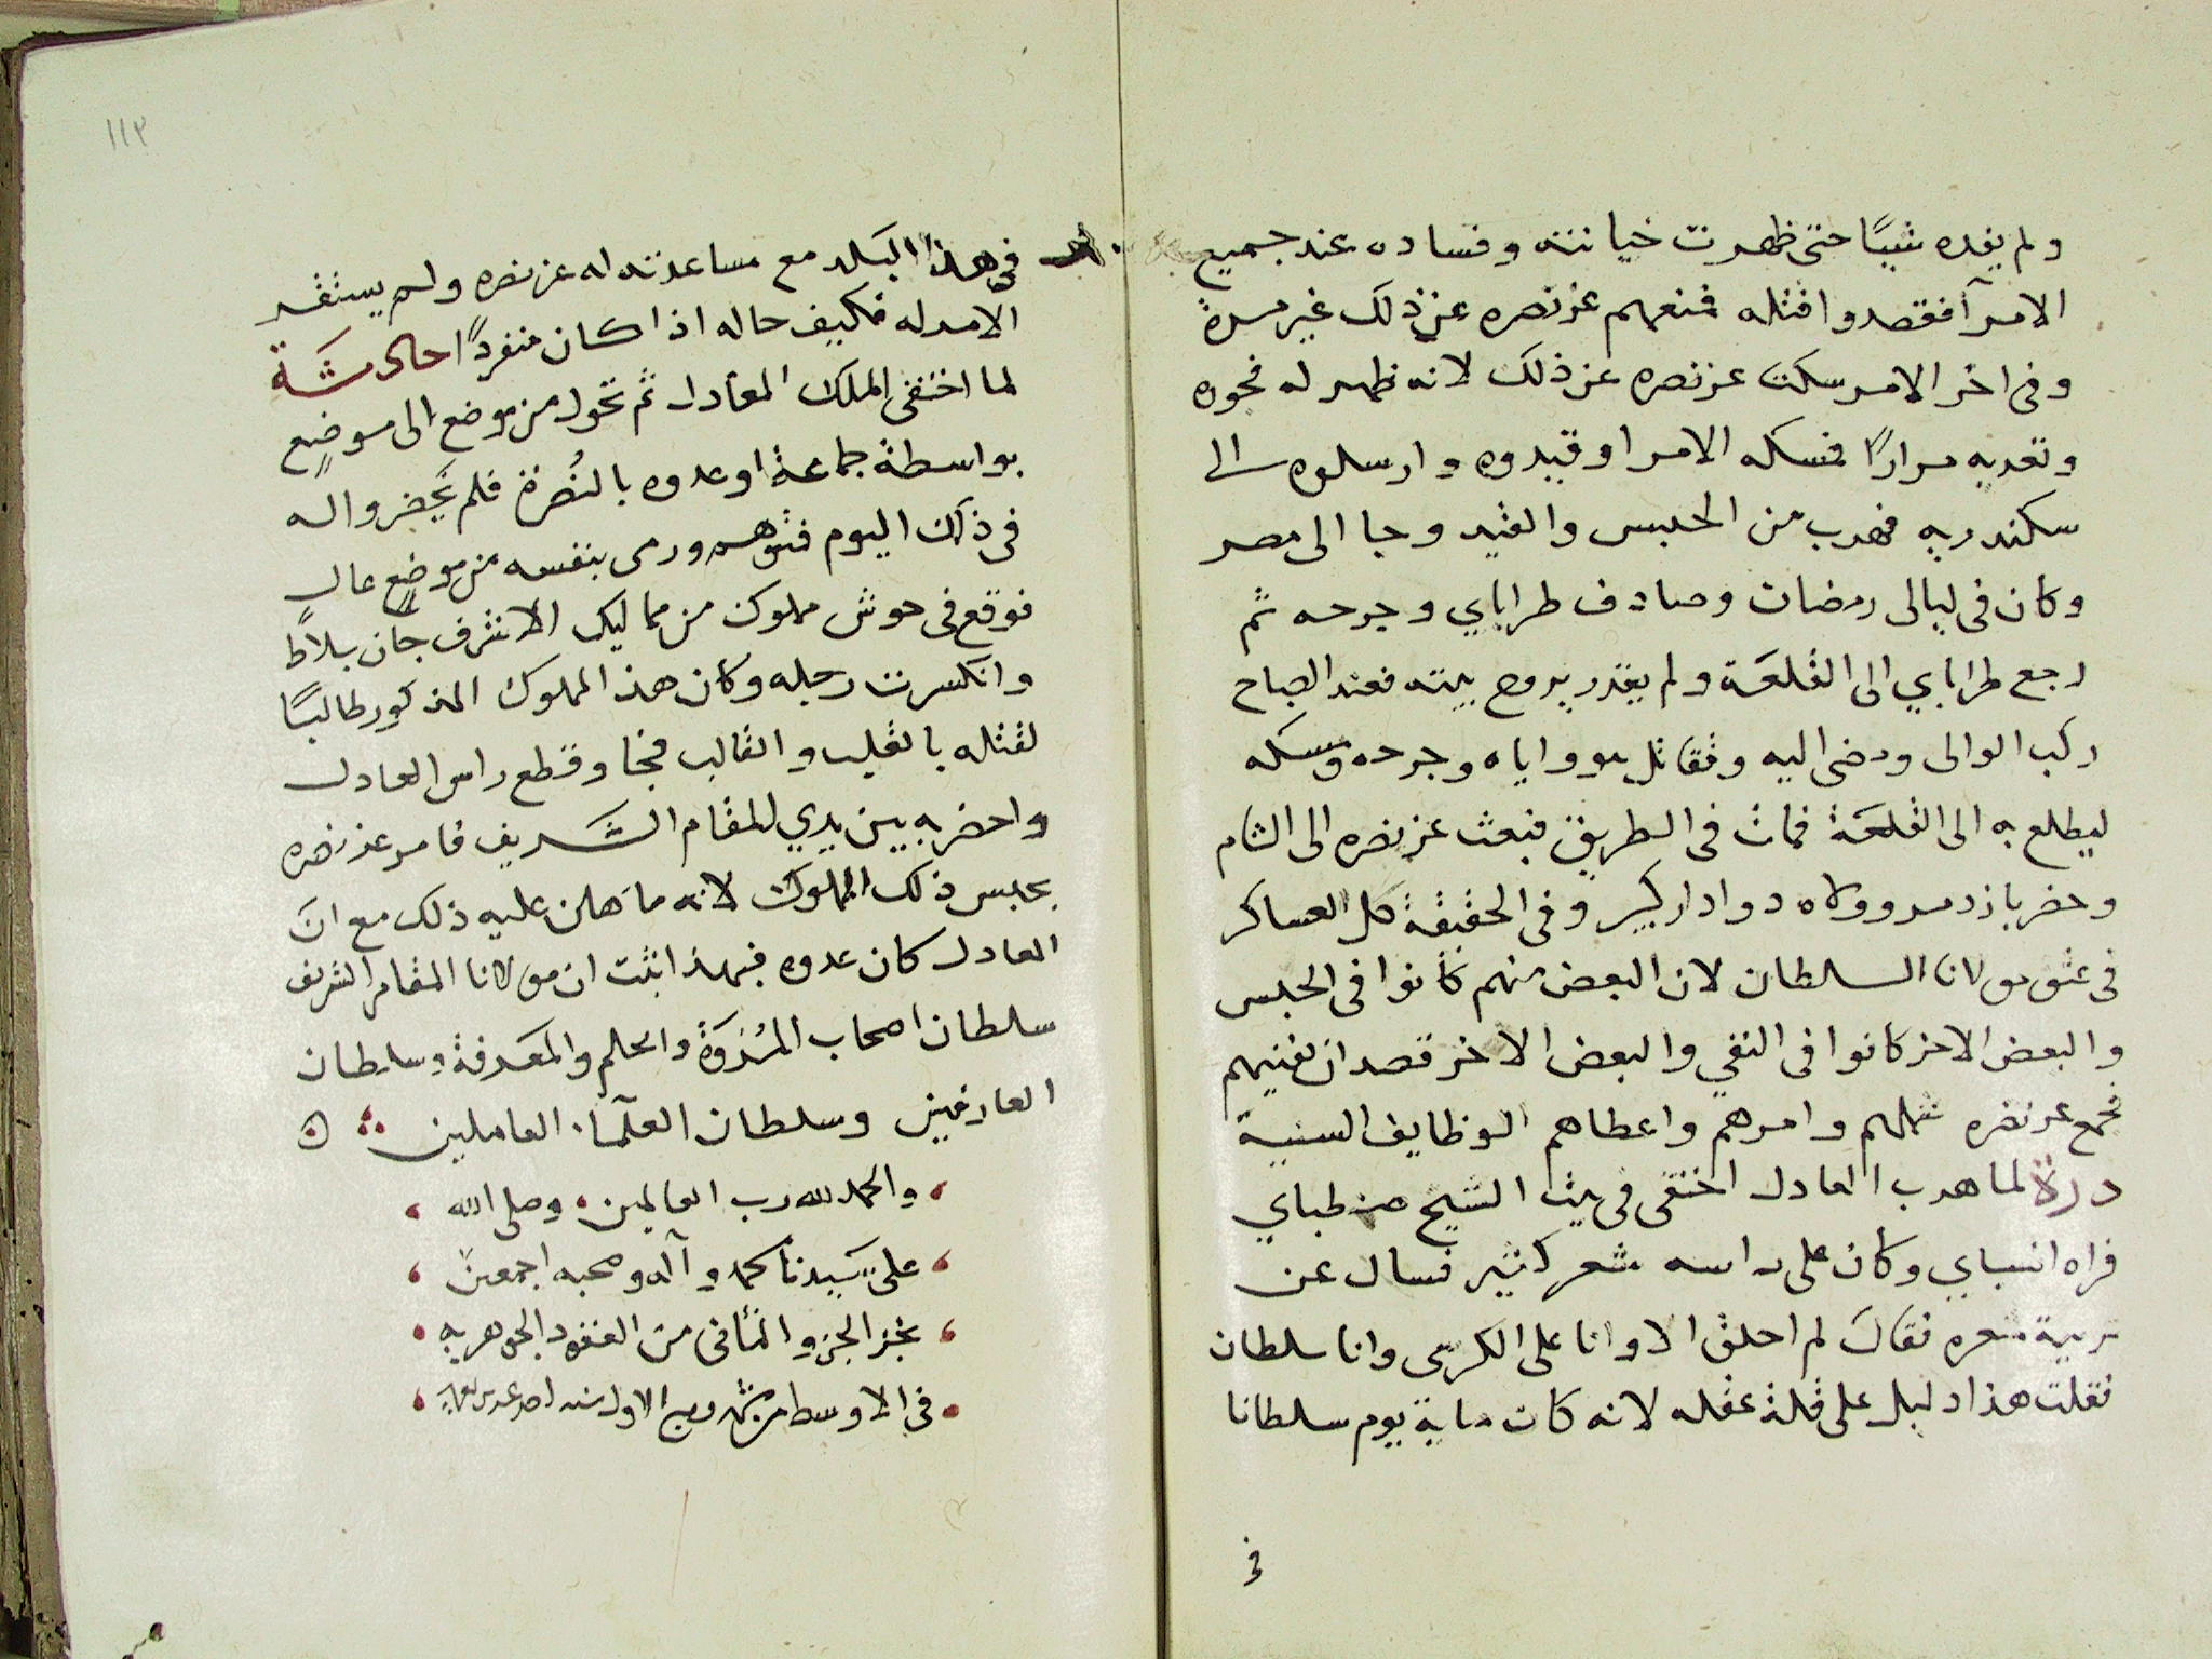 ولم يفده شيئًا حتى ظهرت خيانته وفساده عند جميع
الامرآ فقصدوا قتله فمنعهم عز نصره عن ذلك غير مرة
وفى اخر الامر سكت عز نصره عن ذلك لانه ظهر له فجوره
وتعديه مرارًا فمسكه الامرا وقيدوه وارسلوه الى
سكندريه فهرب من الحبس والقيد وجا الى مصر
وكان فى ليالى رمضان وصادف طراباي وجرحه ثم
رجع طراباي الى القلعة ولم يقدر يروح بيته فعند الصباح
ركب الوالى ومضى اليه وتقاتل هو واياه وجرحه ومسكه
ليطلع به الى القلعة فمات فى الطريق فبعث عز نصره الى الشام
وحضر بازدمر وولاه دوادار كبير وفى الحقيقة كل العساكر
فى عتق مولانا السلطان لان البعض منهم كانوا فى الحبس
والبعض الاخر كانوا فى النفي والبعض الاخر قصد ان يفنيهم
فجمع عز نصره شملهم وامرهم واعطاهم الوظايف السنية
درة لما هرب العادل اختفى فى بيت الشيخ صنطباي
فراه انسباي وكان على راسه شعر كثير فسال عن
تربية شعره فقال لم احلق الا وانا على الكرسى وانا سلطان
فقلت هذا دليل على قلة عقله لانه كان ماية يوم سلطانا
فى
١١٣
فى هذا البلد مع مساعدته له عز نصره ولم يستقر
الامر له فكيف حاله اذا كان منفردًا حادشة
لما اختفى الملك العادل ثم تحول من موضع الى موضع
بواسطة جماعة اوعدوه بالنُصرة فلم يحضروا له
فى ذلك اليوم فتوهم ورمى بنفسه من موضع عال
فوقع فى حوش مملوك من مماليك الاشرف جان بلاط
وانكسرت رجله وكان هذا المملوك المذكور طالبًا
لقتله بالقلب والقالب فجا وقطع راس العادل
واحضر به بين يدي المقام الشريف فامر عز نصره
بحبس ذلك المملوك لانه ما هان عليه ذلك مع ان
العادل كان عدوه فبهذا ثبت ان مولانا المقام الشريف
سلطان اصحاب المُرُوَّة والحلم والمعرفة وسلطان
العارفين وسلطان العلمآ العاملين
والحمد لله رب العالمين وصلى الله
على سيدنا محمد وآله وصحبه اجمعين
نجز الجزو الثانى من العقود الجوهريه
فى الاوسط من شهر ربيع الاول سنه احد